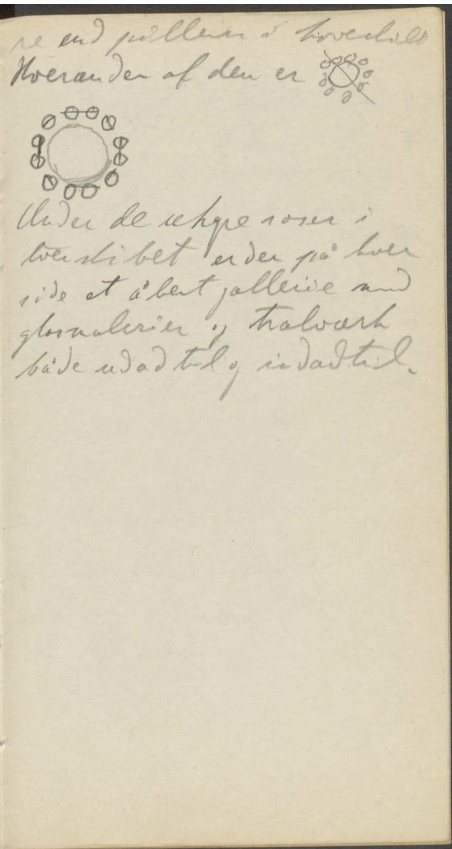 re end pillerne i hovedskib
Hveranden af dem er
Under de uhyre roser i
tverskibet er der på hver
side et åbent galleri med
glasmalerier og tralværk
både udadtil og indadtil.